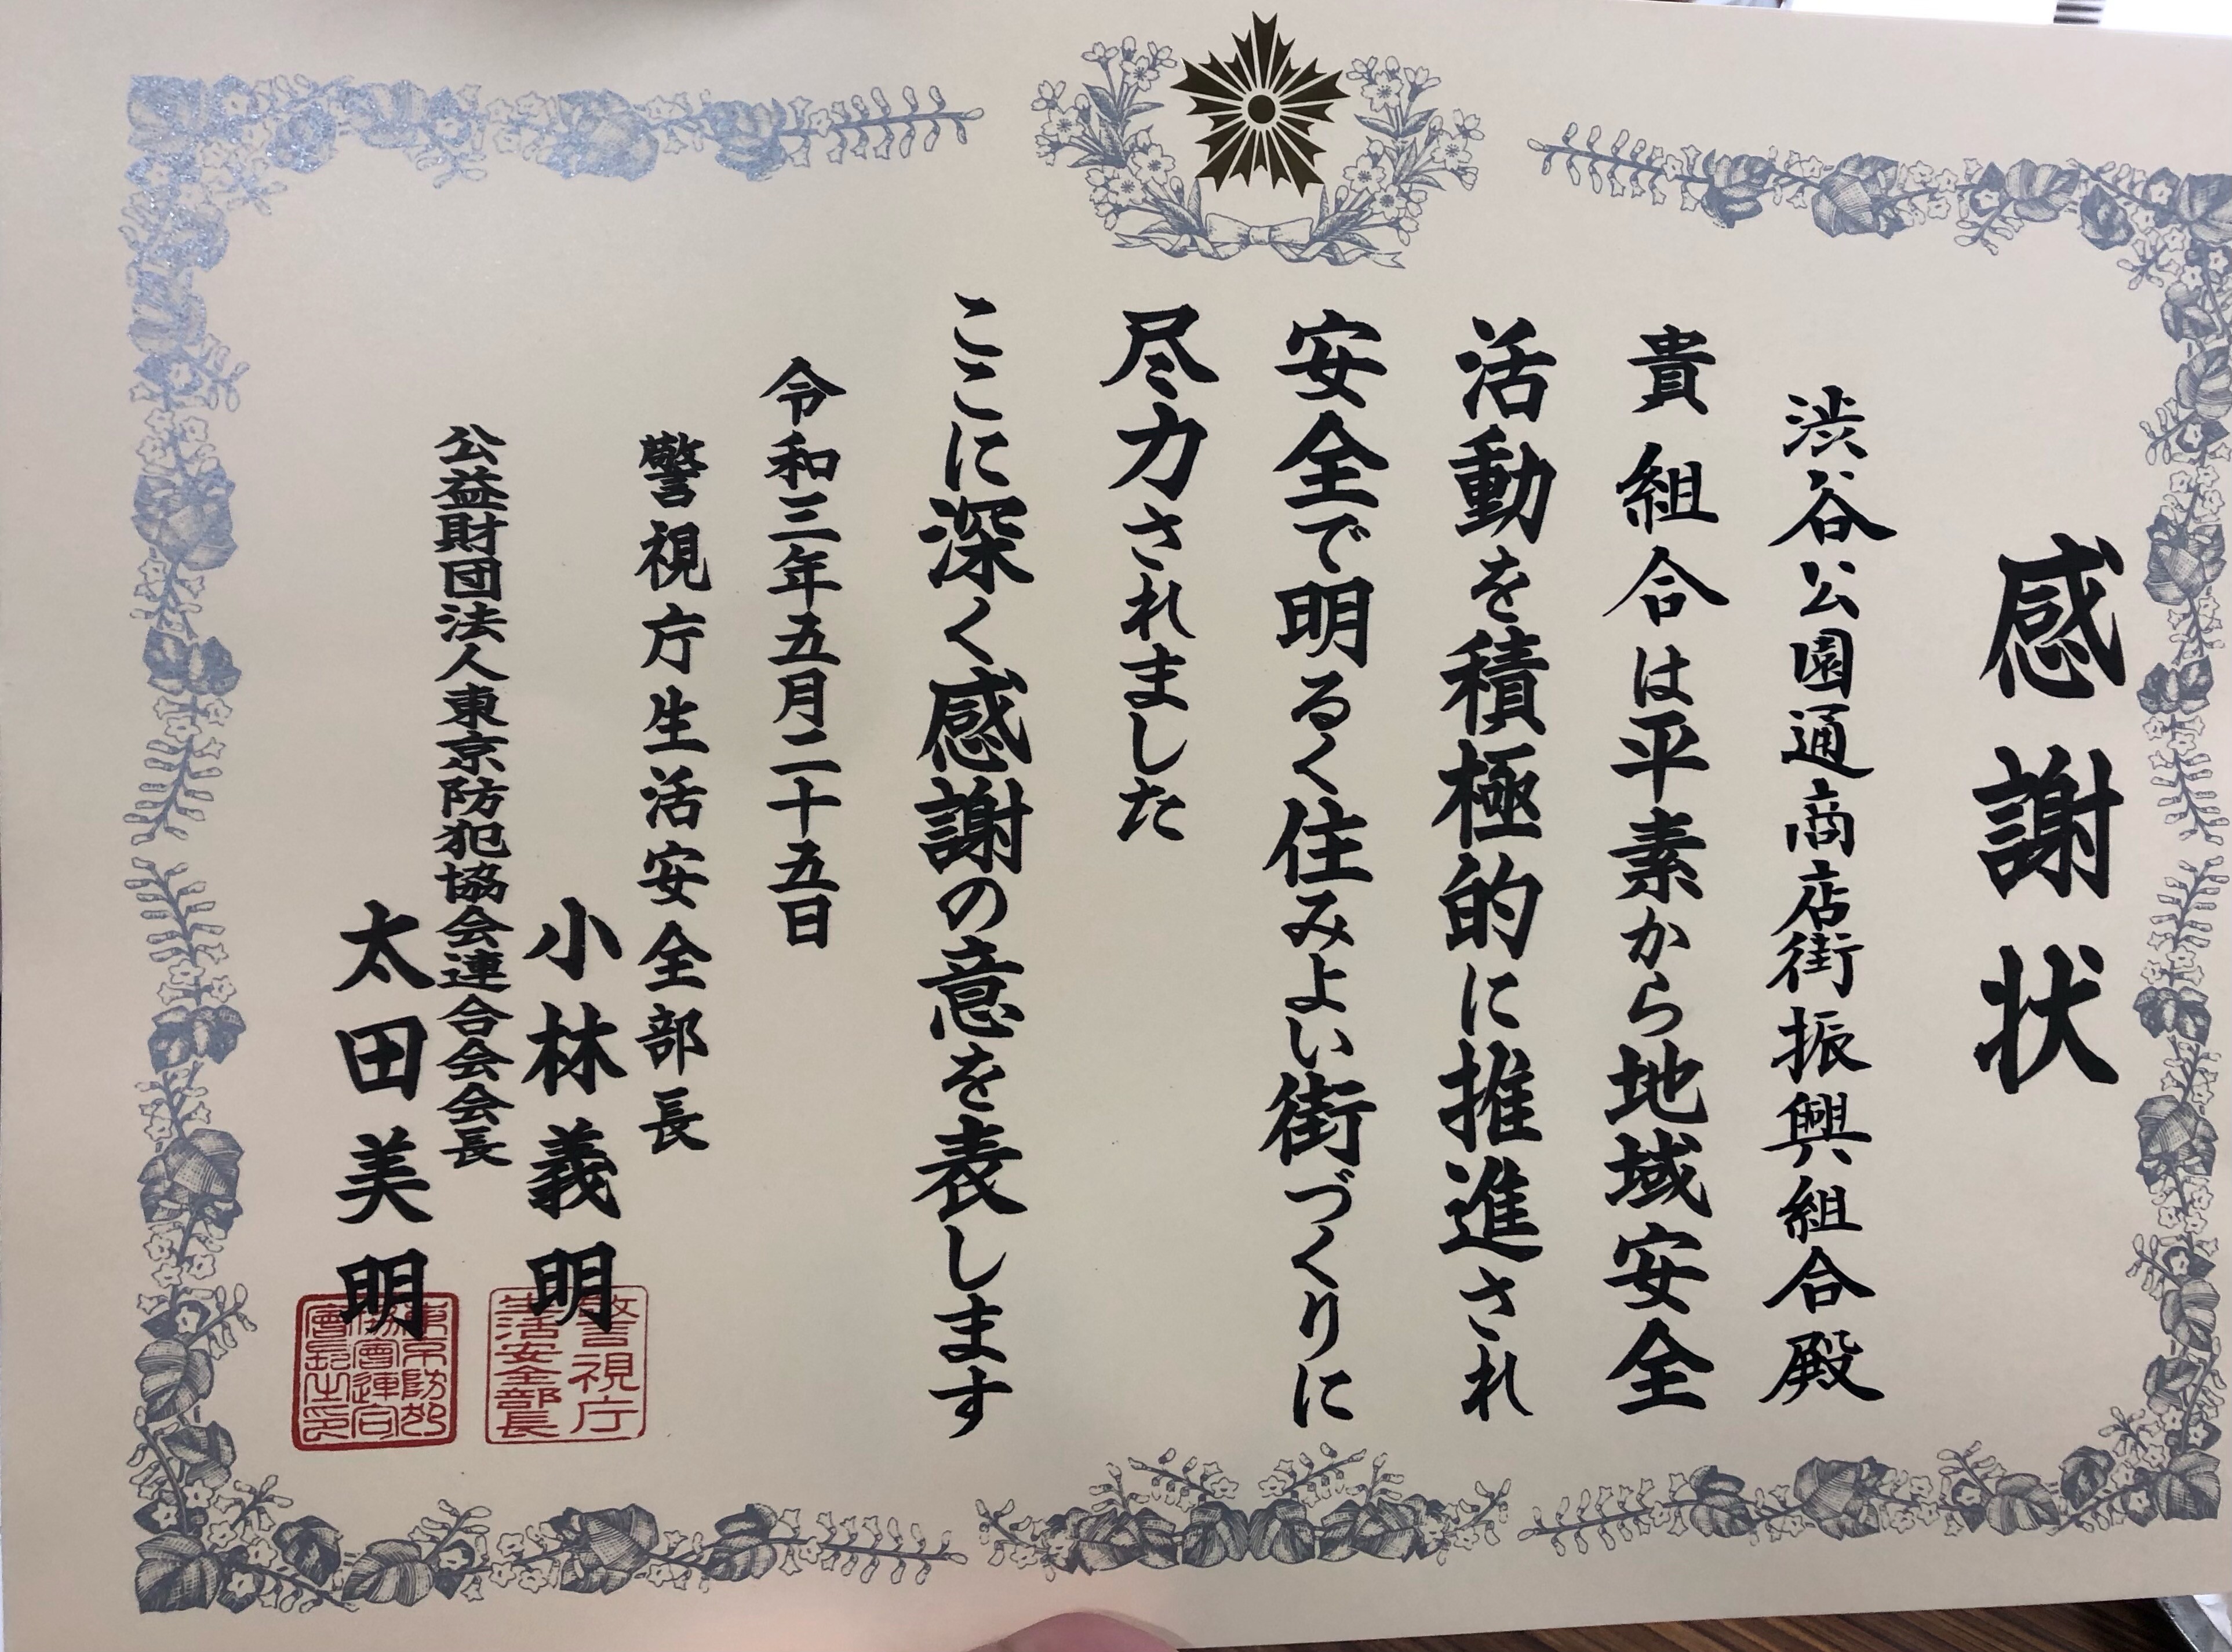 感謝状
渋谷公園通商店街振興組合殿
貴組合は平素から地域安全
活動を積極的に推進され
安全で明るく住みよい街づくりに
尽力されました
ここに深く感謝の意を表します
令和三年五月二十五日
警視庁生活安全部長
小林義明
警視庁
生活安全部長
公益財団法人東京防犯協会連合会会長
太田美明
東京防犯
協會連合
會長之印